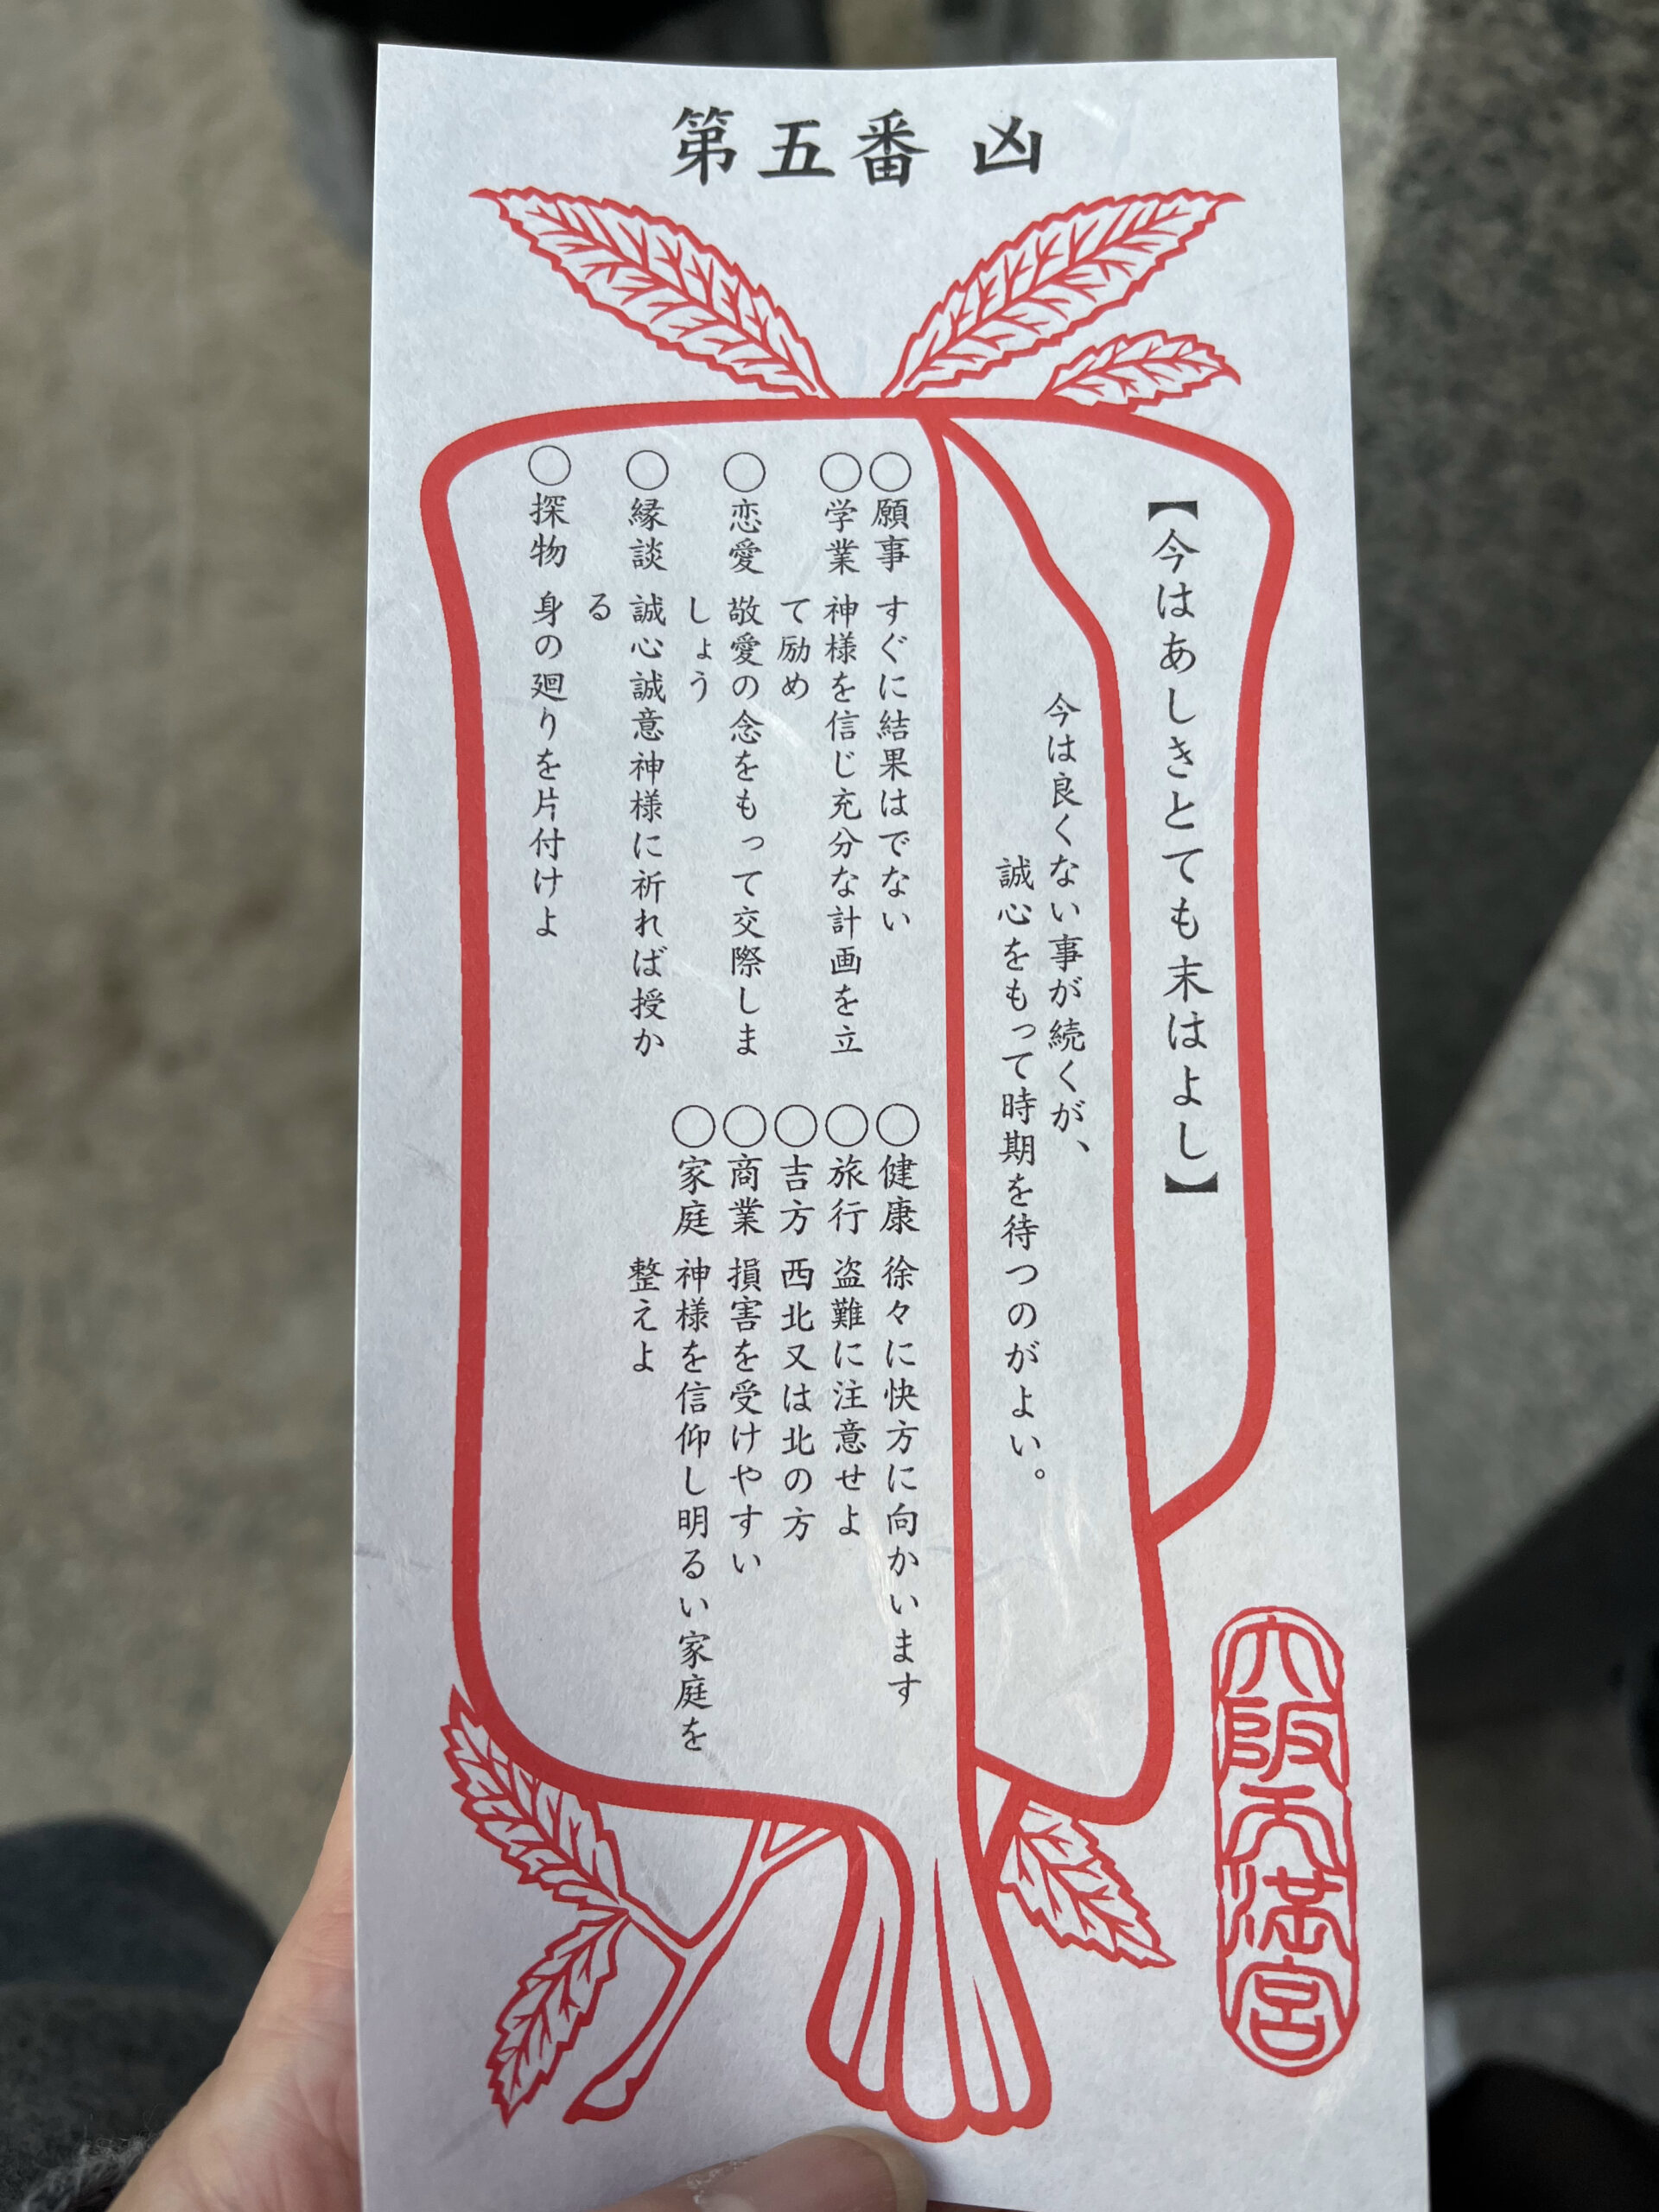 第五番 凶
【今はあしきとても末はよし】
今は良くない事が続くが、
誠心をもって時期を待つのがよい。
○願事 すぐに結果はでない
○学業 神様を信じ充分な計画を立
て励め
○恋愛 敬愛の念をもって交際しま
しょう
○縁談 誠心誠意神様に祈れば授か
る
○探物 身の廻りを片付けよ
○健康 徐々に快方に向かいます
○旅行 盗難に注意せよ
○吉方 西北又は北の方
○商業 損害を受けやすい
○家庭 神様を信仰し明るい家庭を
整えよ
大阪天満宮